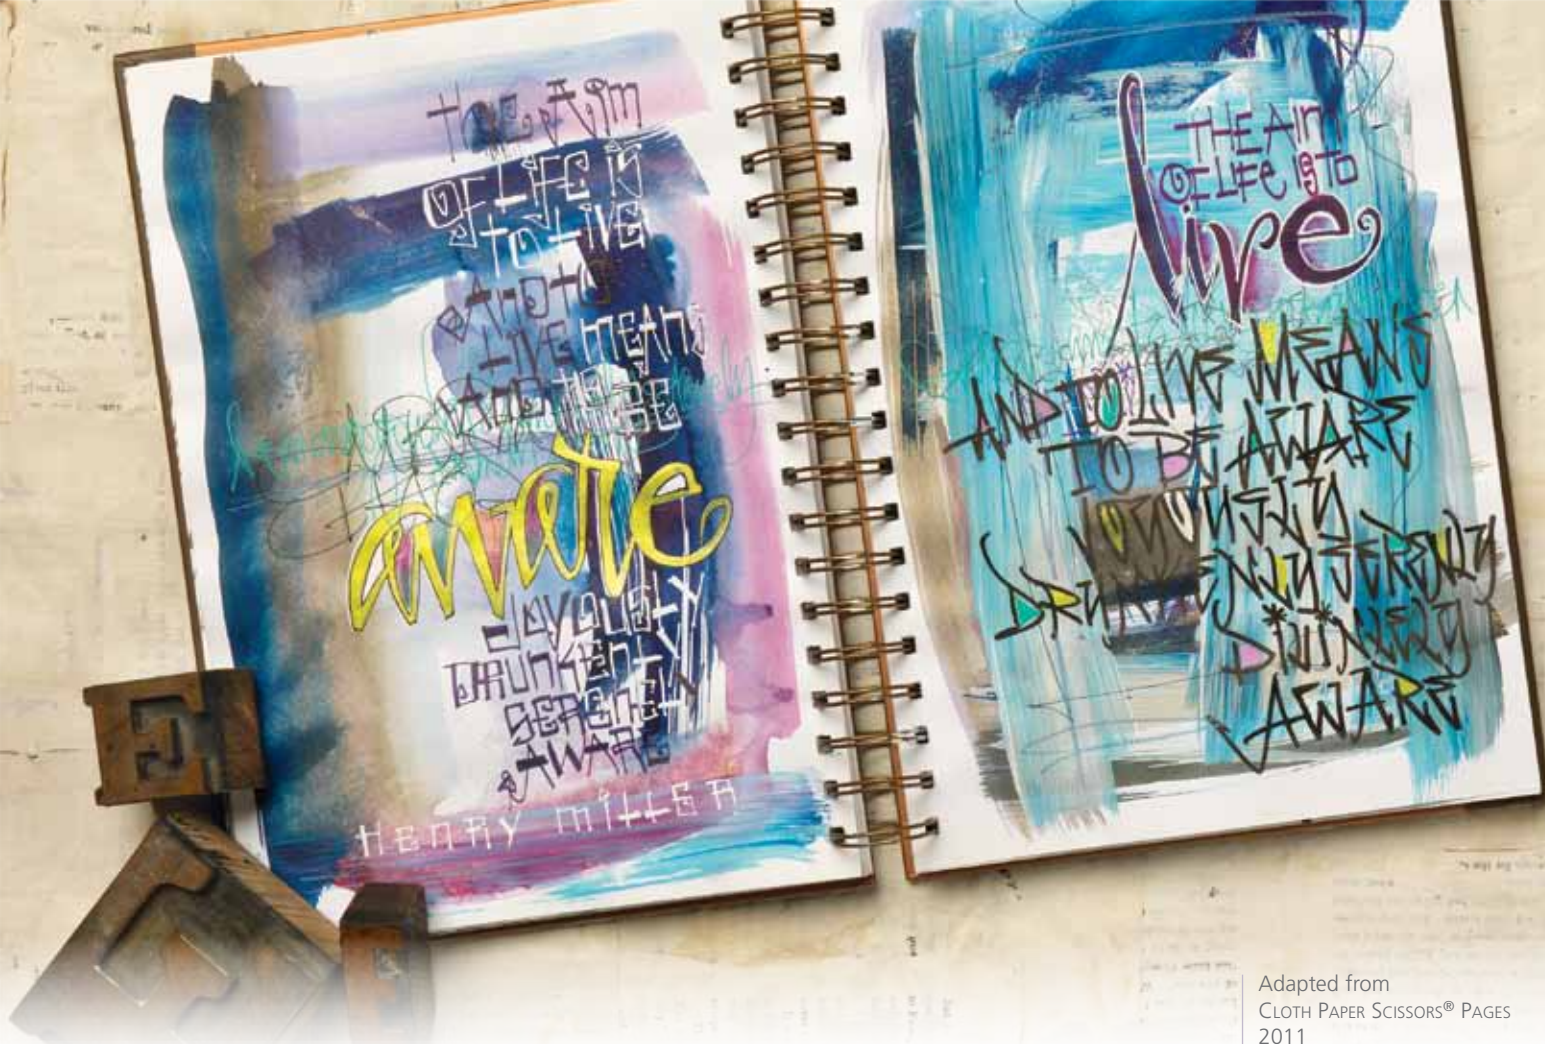 THE AIM
OF LIFE IS
TO LIVE
AND TO
LIVE MEANS
TO BE
aware
JOYOUSLY
DRUNKENLY
SERENELY
AWARE
HENRY MILLER
THE AIM
OF LIFE IS TO
live
AND TO LIVE MEANS
TO BE AWARE
JOYOUSLY
DRUNKENLY SERENELY
DIVINELY
AWARE
E
Adapted from
CLOTH PAPER SCISSORS® PAGES
2011